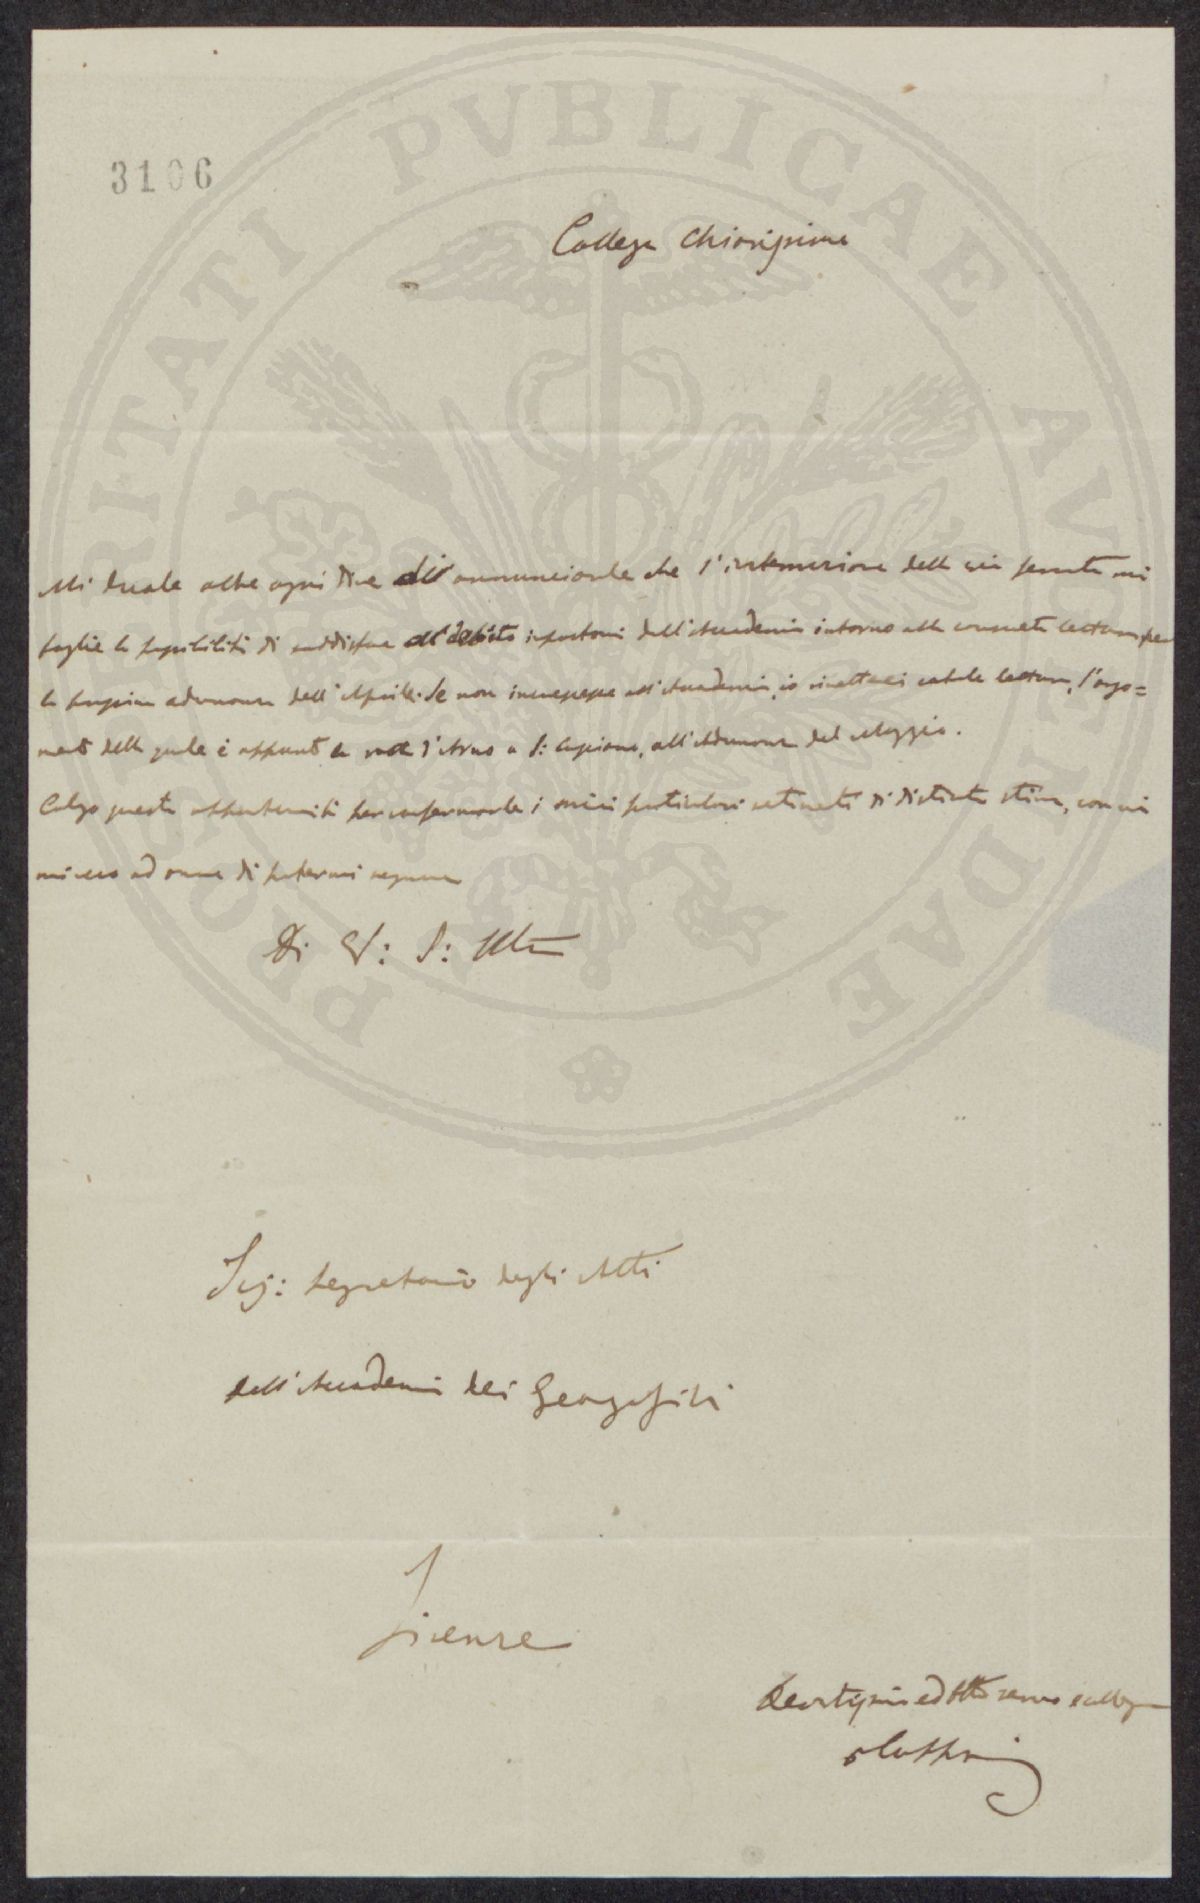 3106
PROSPERITATI PVBLICAE AVGENDAE
Collega Chiarissimo
Mi duole oltre ogni dire all' annunciarle che l' intemerione della mia mi
toglie la possibilità di soddisfare al debito impostomi dall'Accademia intorno alla consueta lettura per
la prossima adunanza dell' Aprile. Se non increscesse all' Accademia, io rimetterei cotale lettura, l'argo=
mento della quale è appunto la valle d'Arno a S: Cipriano, all'Adunanza del Maggio.
Colgo questa opportunità per confermarle i miei particolari sentimenti di distinta stima, con cui
mi reco ad onore di potermi segnare
Di V: S: Illma
Sig: Segretario degli Atti
dell'Accademia dei Georgofili
Firenze
Devotissimo ed servo e collega